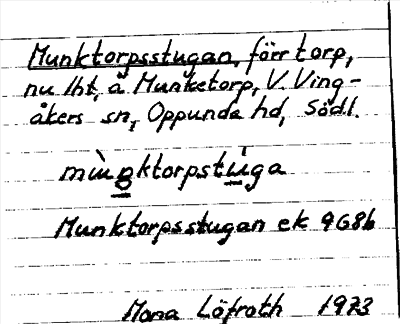 Munktorpsstugan, förr torp,
nu lht, å Munketorp, V. Ving-
åkers sn, Oppunda hd, Södl.
mùŋktorpstu̇ga
Munktorpsstugan ek 9G8b
Mona Löfroth 1973